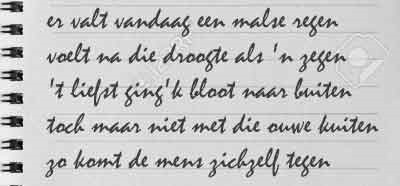 er valt vandaag een malse regen
voelt na die droogte als 'n zegen
't liefst ging'k bloot naar buiten
toch maar niet met die ouwe kuiten
zo komt de mens zichzelf tegen